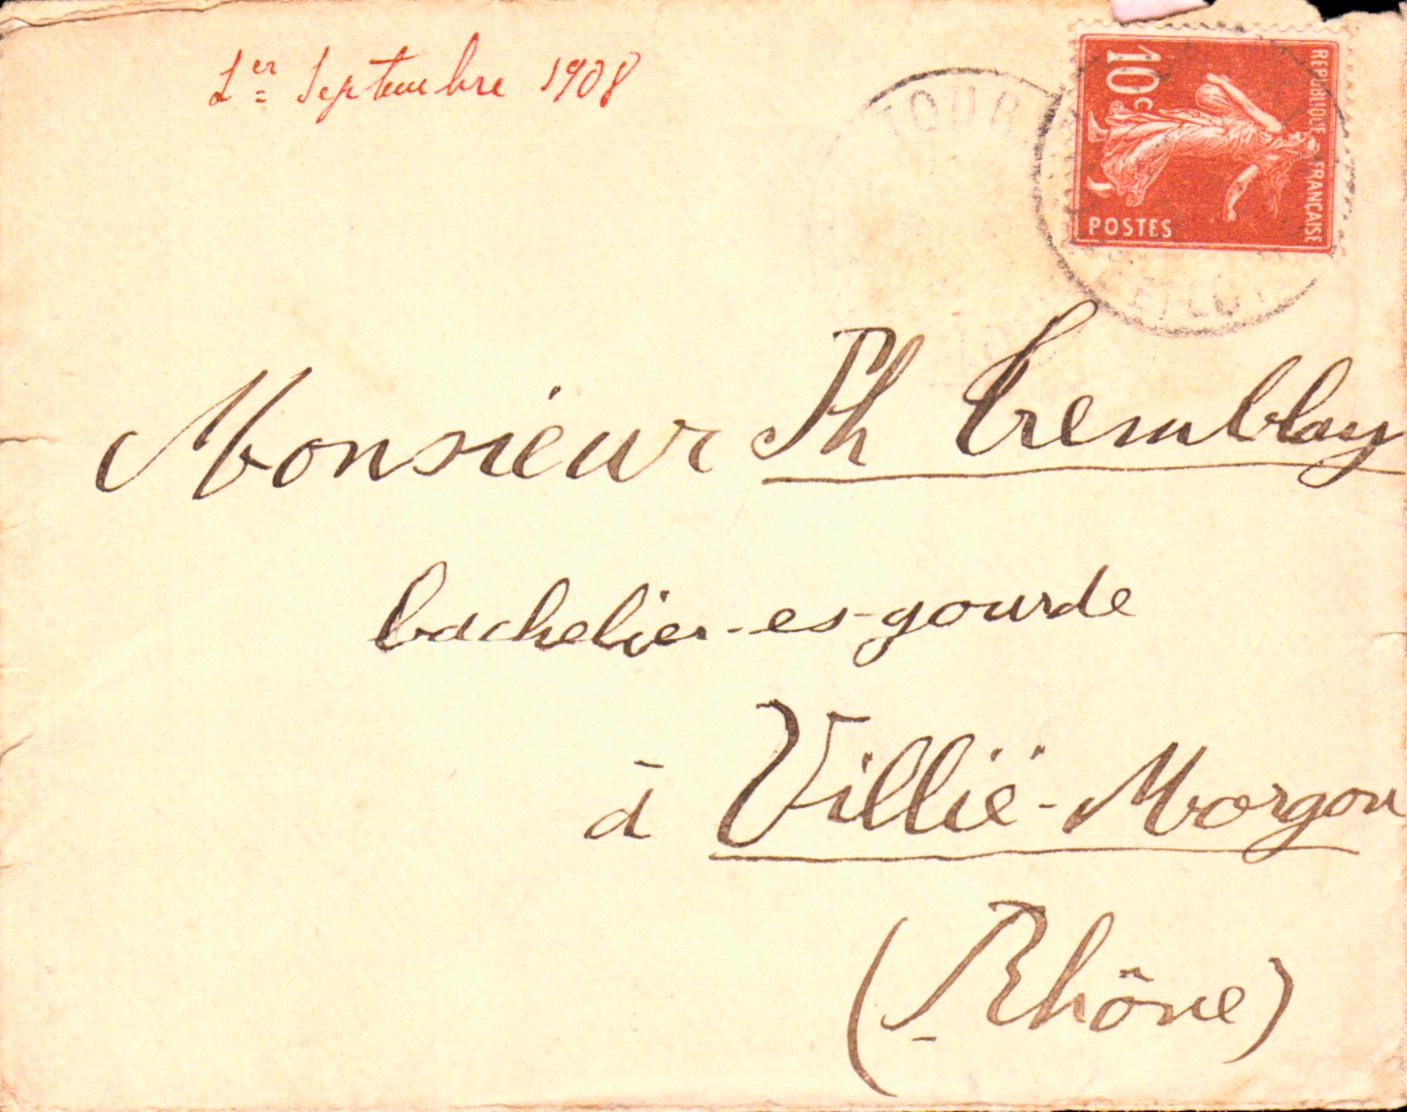 1er Septembre 1908
10c
REPUBLIQUE FRANÇAISE
POSTES
TOUR
Monsieur Th Tremblay
bachelier-es-gourde
à Villié-Morgon
(Rhône)